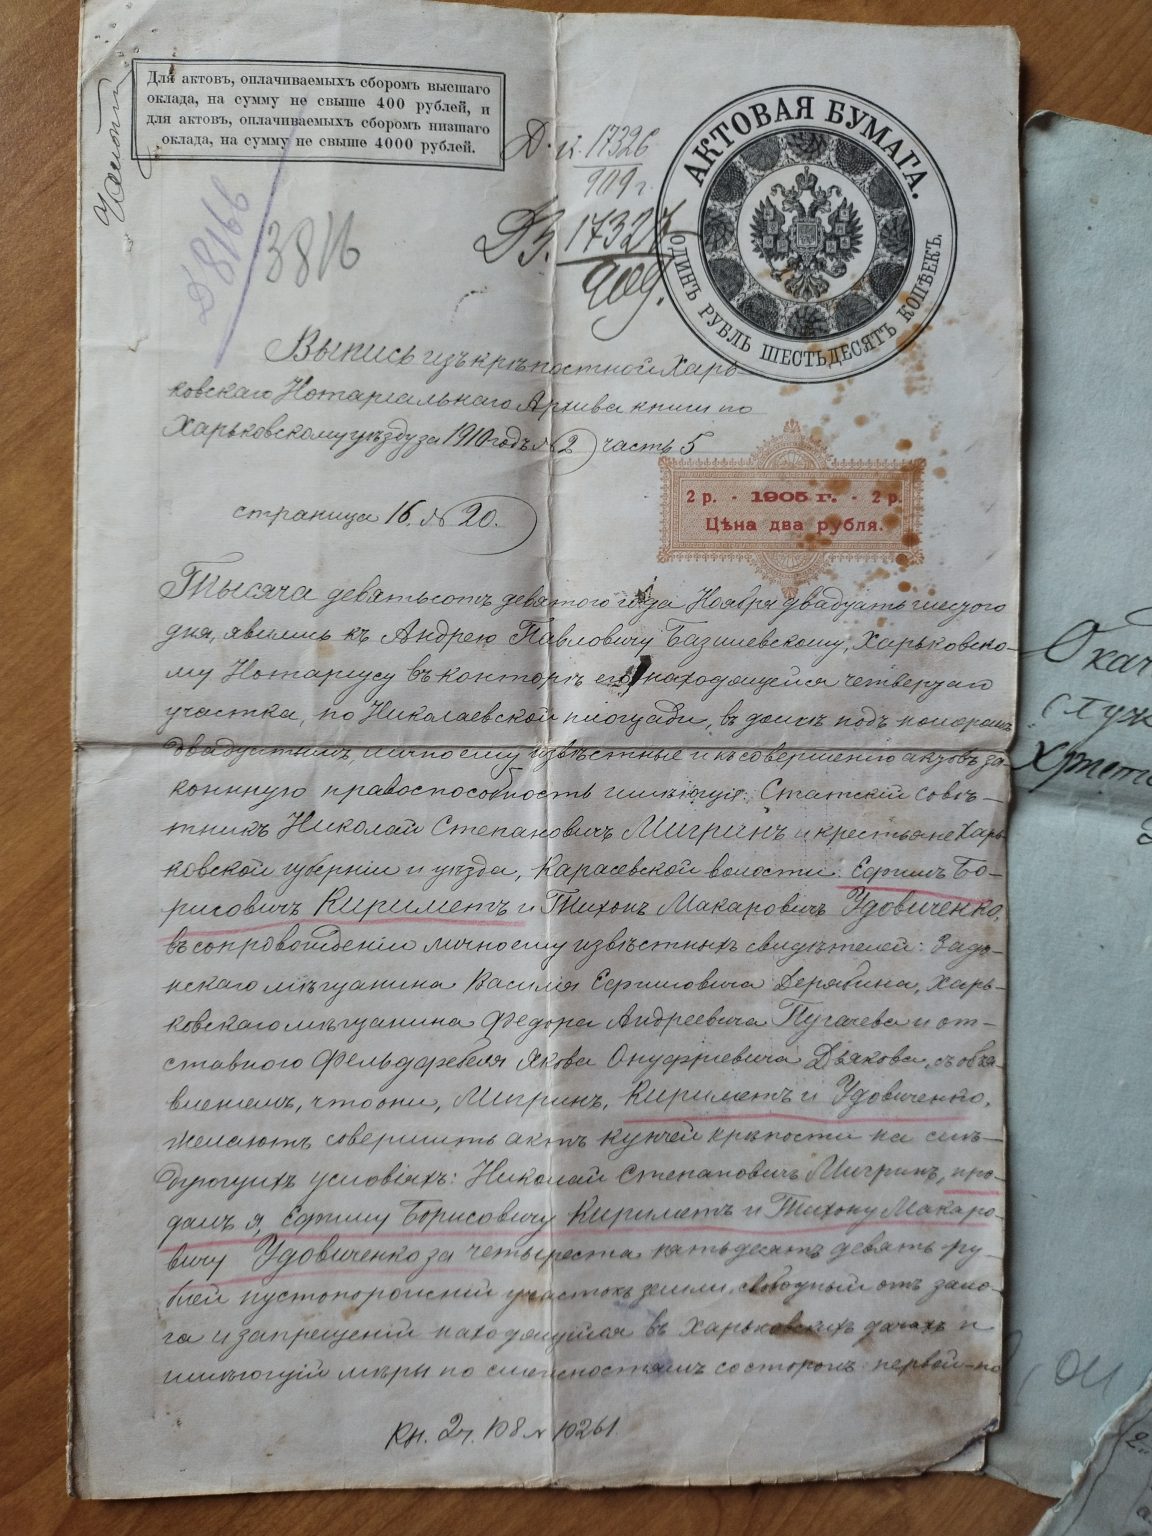 Для актовъ, оплачиваемыхъ сборомъ высшаго
оклада, на сумму не свыше 400 рублей, и
для актовъ, оплачиваемыхъ сборомъ низшаго
оклада, на сумму не свыше 4000 рублей.
АКТОВАЯ БУМАГА.
ОДИНЪ РУБЛЬ ШЕСТЬДЕСЯТЪ КОПѢЕКЪ.
17326
909 г.
17327
909.
Д 8166
3816
Выпись изъ крѣпостной Харь-
ковскаго Нотаріальнаго Архива книги по
Харьковскому уѣзду за 1910 годъ № 2 часть 5
страница 16. № 20.
2 р. - 1905 г. - 2 р.
Цѣна два рубля.
Тысяча девятьсотъ девятого года Ноября двадцать шестого
дня, явились къ Андрею Павловичу Базилевскому, Харьковско-
му Нотаріусу въ конторѣ его, находящейся четвертаго
участка, по Николаевской площади, въ домѣ подъ номеромъ
двадцатымъ, лично ему извѣстные и къ совершенію актовъ за-
конную правоспособность имѣющіе: Статскій совѣ-
тникъ Николай Степановичъ Мигринъ и крестьяне Харь-
ковской губерніи и уѣзда, Карасевской волости: Ефимъ Бо-
рисовичъ Кириметъ и Тихонъ Макаровичъ Удовиченко,
въ сопровожденіи лично ему извѣстныхъ свидѣтелей: Задо-
нскаго мѣщанина Василія Ефимовича Дерябина, Харь-
ковскаго мѣщанина Федора Андреевича Пугачева и от-
ставного Фельдфебеля Якова Онуфріевича Дьякова, съ объя-
вленіемъ, что они, Мигринъ, Кириметъ и Удовиченко,
желаютъ совершить актъ купчей крѣпости на слѣ-
дующихъ условіяхъ: Николай Степановичъ Мигринъ, про-
далъ я, Ефиму Борисовичу Кириметъ и Тихону Макаро-
вичу Удовиченко за четыреста пятьдесятъ девять ру-
блей пустопорожній участокъ земли, свободный отъ зало-
га и запрещеній находящійся въ Харьковскихъ дачахъ и
имѣющій мѣры по смежностямъ со сторонъ: первой-по
Кн. 2 ч. 108 № 10261.